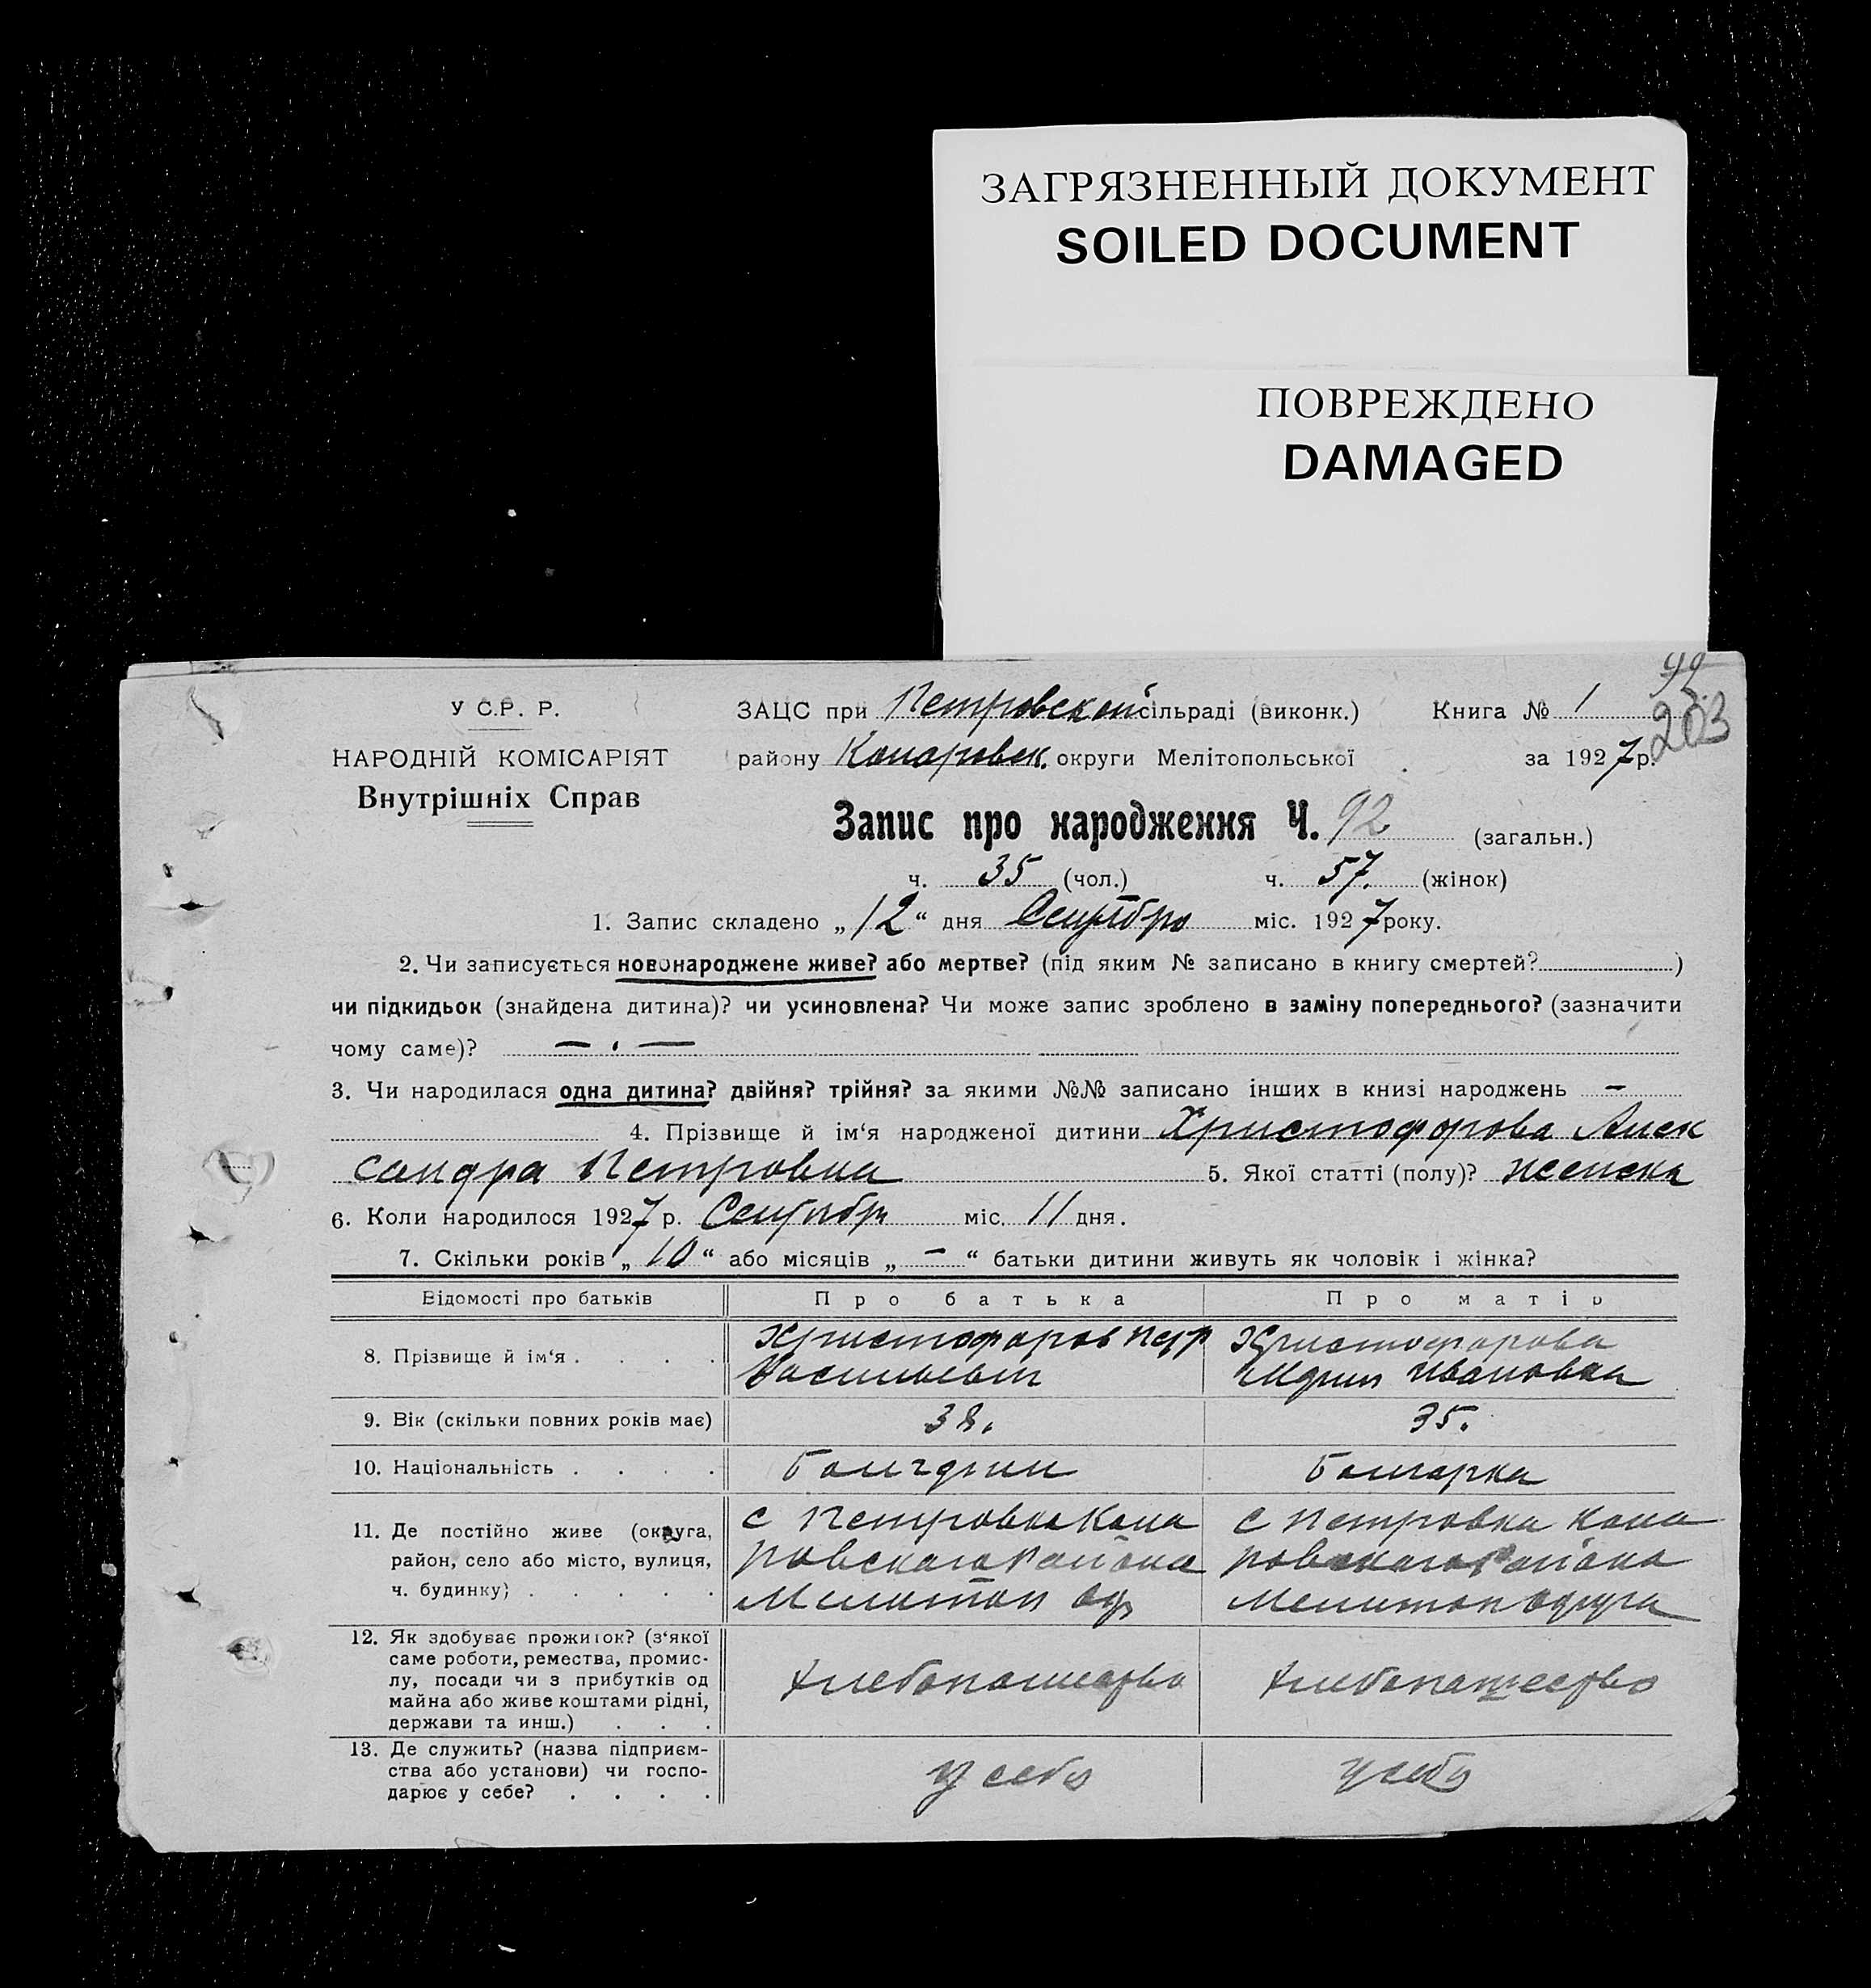 ЗАГРЯЗНЕННЫЙ ДОКУМЕНТ
SOILED DOCUMENT
ПОВРЕЖДЕНО
DAMAGED
203
У С.Р. Р.
ЗАЦС при Петровской сільраді (виконк.) Книга № 1
НАРОДНІЙ КОМІСАРІЯТ
району Конаровск. округи Мелітопольської за 1927 р.
Внутрішніх Справ
Запис про народження Ч. 92 (загальн.)
ч. 35 (чол.) ч. 57. (жінок)
1. Запис складено „12“ дня Сентебро міс. 1927 року.
2. Чи записується новонароджене живе? або мертве? (під яким № записано в книгу смертей? )
чи підкидьок (знайдена дитина)? чи усиновлена? Чи може запис зроблено в заміну попереднього? (зазначити
чому саме)? — . —
3. Чи народилася одна дитина? двійня? трійня? за якими №№ записано інших в книзі народжень —
4. Прізвище й ім‘я народженої дитини Христофорова Алек
сандра Петровна 5. Якої статті (полу)? женска
6. Коли народилося 1927 р. міс. 11 дня.
7. Скільки років „10“ або місяців „—“ батьки дитини живуть як чоловік і жінка?
Відомості про батьків Про батька Про матір
8. Прізвище й ім‘я . . . . Христофоров Петр Христофорова
Василиевич Ивановна
9. Вік (скільки повних років має) 38. 35.
10. Національність . . . . болгарин болгарка
11. Де постійно живе (округа, с Петровка Кона с Петровка Кона
район, село або місто, вулиця, ровскага района ровскага района
ч. будинку) . . . . . Мелитоп окр Мелитоп округа
12. Як здобуває прожиток? (з‘якої
саме роботи, ремества, промис-
лу, посади чи з прибутків од хлебопашество хлебопашество
майна або живе коштами рідні,
держави та инш.) . . .
13. Де служить? (назва підприєм-
ства або установи) чи госпо- у себя у себя
дарює у себе? . . . .